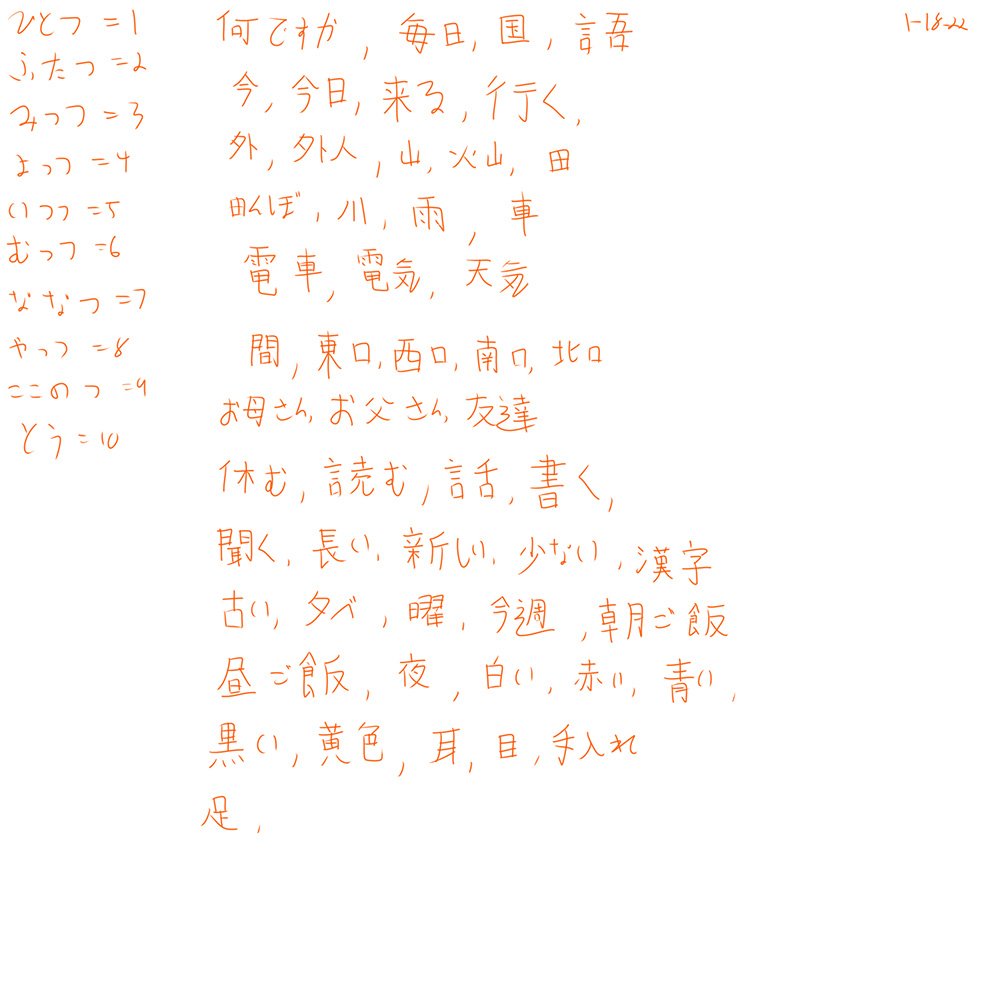 ひとつ = 1
ふたつ = 2
みっつ = 3
よっつ = 4
いつつ = 5
むっつ = 6
ななつ = 7
やっつ = 8
ここのつ = 9
とう = 10
何ですか, 毎日, 国, 言吾
今, 今日, 来る, 行く,
外, 外人, 山, 火山, 田
田んぼ, 川, 雨, 車
電車, 電気, 天気
間, 東口, 西口, 南口, 北口
お母さん, お父さん, 友達
休む, 読む, 話, 書く,
聞く, 長い, 新しい, 少ない, 漢字
古い, 夕べ, 曜, 今週, 朝ご飯
昼ご飯, 夜, 白い, 赤い, 青い,
黒い, 黄色, 耳, 目, 手入れ
足,
1-18-22